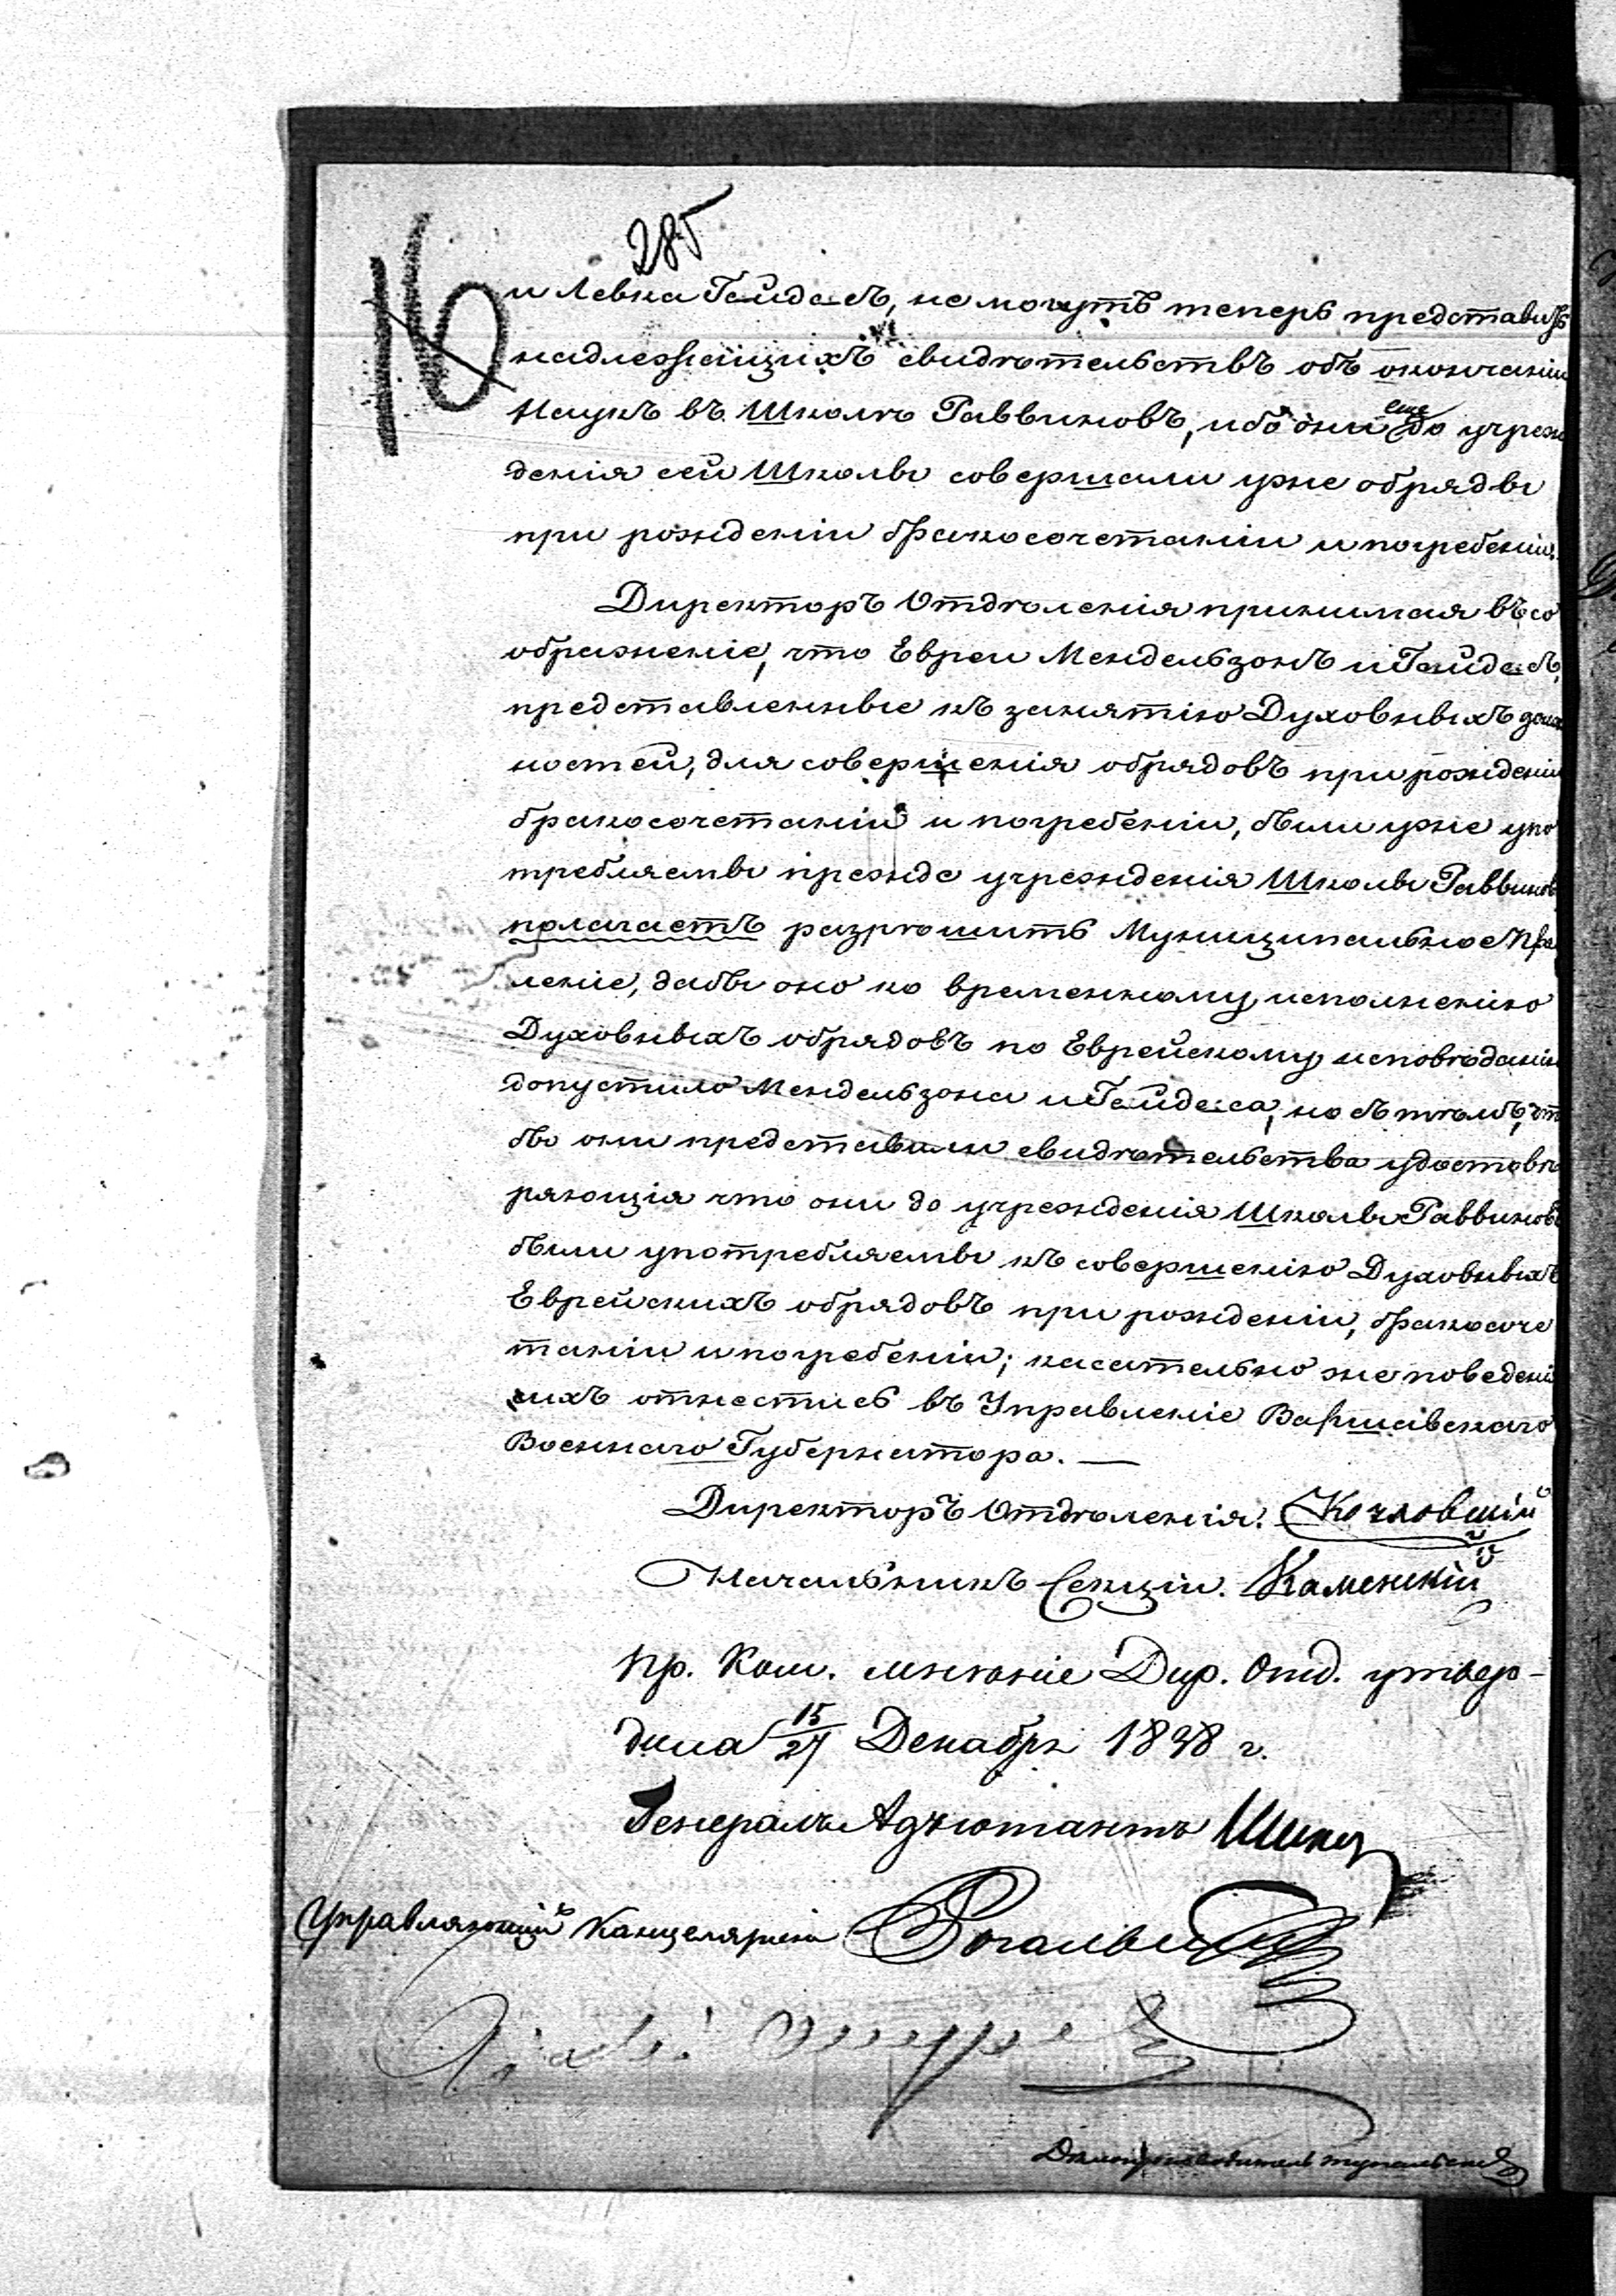 285
16
и Левка Гайдесъ, не могутъ теперь представить
надлежащихъ свидѣтельствъ объ окончаніи
Наукъ въ Школѣ Раввиновъ, ибо они еще до учреж
денія сей Школы совершали уже обряды
при рожденіи бракосочетаніи и погребеніи.
Директоръ Отдѣленія принимая въ со
ображеніе, что Евреи Мендельзонъ и Гайдесъ,
представленные къ занятію Духовныхъ долж
ностей, для совершенія обрядовъ при рожденіи
бракосочетаніи и погребеніи, были уже упо
требляемы прежде учрежденія Школы Раввиновъ
полагаетъ разрѣшить Муниципальное Прав
леніе, дабы оно ко временному исполненію
Духовныхъ обрядовъ по Еврейскому исповѣданію
допустило Мендельзона и Гайдеса, но съ тѣмъ, что
бы они представили свидѣтельства удостовѣ
ряющія что они до учрежденія Школы Раввиновъ
были употребляемы къ совершенію Духовныхъ
Еврейскихъ обрядовъ при рожденіи, бракосоче
таніи и погребеніи; касательно же поведенія
ихъ отнестись въ Управленіе Варшавскаго
Военнаго Губернатора. —
Директоръ Отдѣленія.
Начальникъ Секціи. Каменскій
Пр. Ком. мнѣніе Дир. Отд. утвер-
дила 15/27 Декабря 1838 г.
Генералъ Адъютантъ Шипов
Управляющій Канцеляріею